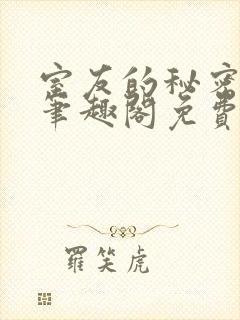 室友的秘密
筆趣閣免費
羅笑虎